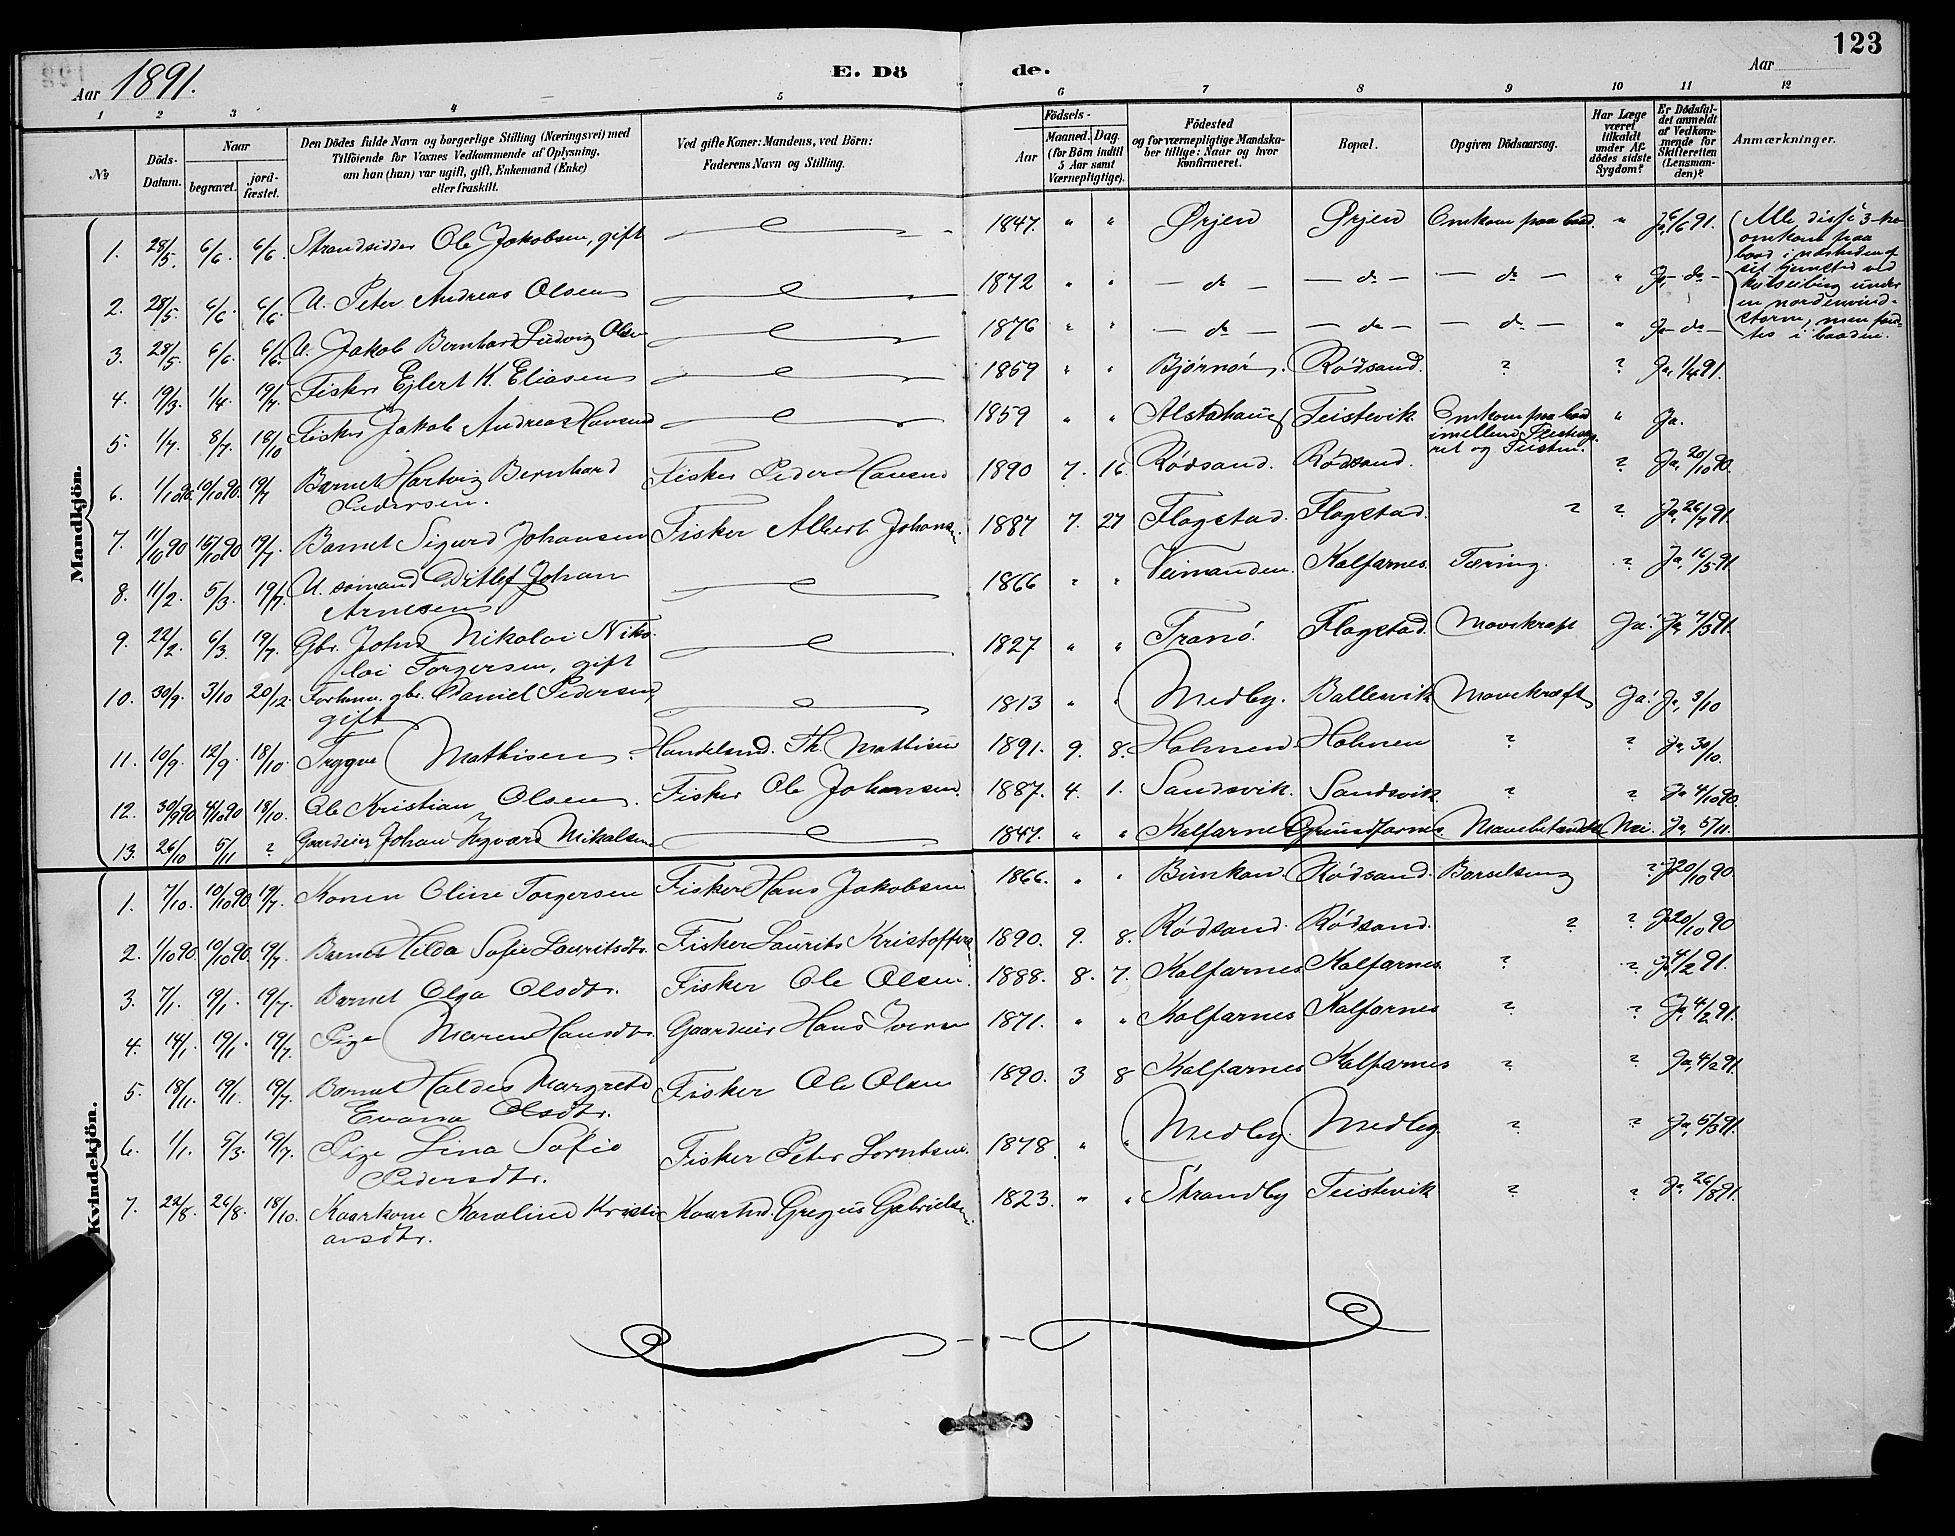 123
Aar 1891.
E. Dö de.
Aar
1 2 3 4 5 6 7 8 9 10 11 12
No
Döds-Datum.
Naar
begravet.
jord-fæstet.
Den Dödes fulde Navn og borgerlige Stilling (Næringsvei) med
Tilföiende for Voxnes Vedkommende af Oplysning,
om han (hun) var ugift, gift, Enkemand (Enke)
eller fraskilt.
Ved gifte Koner: Mandens, ved Börn:
Faderens Navn og Stilling.
Födsels-
Aar
Maaned. Dag.
(for Börn indtil
5 Aar samt
Værnepligtige).
Födested
og for værnepligtige Mandska-
ber tillige: Naar og hvor
konfirmeret.
Bopæl.
Opgiven Dödsaarsag.
Har Læge
været
tilkaldt
under Af-
dödes sidste
Sygdom?
Er Dödsfal-
det anmeldt
af Vedkom-
mende for
Skifteretten
(Lensman-
den)?
Anmærkninger.
Mandkjön.
1. 28/5. 6/6. 6/6. Strandsidder Ole Jakobsen, gift 1847. " " Ørjen Ørjen Omkom paa baad. " Ja 6/6 91.
Alle disse 3
omkom paa
baad i nærheden af
sit hjemsted ved
under
en nordenvind-
storm, men fand-
tes i baaden.
2. 28/5. 6/6. 6/6. U. Peter Andreas Olsen 1872 " " — do — — do — — do — " Ja — do —
3. 28/5. 6/6. 6/6. U. Jakob Bernhard Ludvig Olsen 1876 " " — do — — do — — do — " Ja — do —
4. 19/3. 1/4. 19/7. Fisker Ejlert K. Eliasen 1859 " " Bjørnør. Rödsand. ? ? Ja, 1/4 91.
5. 1/7. 8/7. 18/10 Fisker Jakob Andreas Hansen 1859 " " Alstahaug Teistevik Omkom paa baad
imellem
og Teisten. " Ja.
6. 1/10 90. 10/10 90. 19/7 Barnet Hartvig Bernhard
Pedersen. Fisker Peder Hansen 1890 7. 16. Rödsand. Rödsand. ? Ja, 20/10 90.
7. 11/10 90 15/10 90 19/7. Barnet Sigurd Johansen Fisker Albert Johans. 1887 7. 27 Flagstad. Flagstad. ? ? Ja, 26/7 91.
8. 11/2. 5/3. 19/7. U. sömand Ditlef Johan
Arnesen 1866 " " Veimanden. Kalfarnes. Tæring. ? Ja, 16/5 91.
9. 22/2. 6/3. 19/7. Gbr. Johan Nikolai Niko-
lai Torgersen, gift 1827 " " Tranö. Flagstad. Mavekræft Ja. Ja, 7/3 91.
10. 30/9. 3/10 20/12. Forhenv. gbr. Daniel Pedersen,
gift 1813 " " Medby. Ballesvik Mavekræft Ja. Ja, 3/10
11. 10/9. 12/9. 18/10. Trygve Mathisen. Handelsmd. Th. Mathisen 1891. 9. 8. Holmen Holmen ? ? Ja, 30/10.
12. 30/9 90 4/10 90 18/10. Ole Kristian Olsen. Fisker Ole Johansen. 1887. 4. 1. Sandsvik. Sandsvik. ? ? Ja 4/10 90.
13. 26/10 5/11 ? Gaardeier Johan Ingvard Nikolaisen 1847. " " Kalfarnes Grundfarnes. Mavebetændelse Nei. Ja, 5/11.
Kvindekjön.
1. 7/10. 10/10 90. 19/7. Konen Oline Torgersen Fisker Hans Jakobsen 1866. " " Rödsand. Barselseng ? Ja 20/10 90
2. 1/10 90. 10/10 90. 19/7. Barnet Hilda Sofie Lauritsdtr. Fisker Laurits Kristoffers. 1890. 9. 8. Rödsand. Rödsand. ? ? Ja 20/10 90
3. 7/1. 19/1. 19/7. Barnet Olga Olsdtr. Fisker Ole Olsen. 1888. 8. 7. Kalfarnes Kalfarnes. ? ? Ja 4/2 91.
4. 14/1. 19/1. 19/7. Pige Maren Hansdtr. Gaardeier Hans Iversen 1871. " " Kalfarnes Kalfarnes ? ? Ja, 4/2 91.
5. 18/11. 19/1. 19/7. Barnet Haldis Margrete
Evanna Olsdtr. Fisker Ole Olsen 1890. 3 8 Kalfarnes Kalfarnes ? ? Ja, 4/2 91.
6. 1/1. 5/3. 19/7. Pige Lina Sofie
Pedersdtr. Fisker Peter Lorntsen. 1878. " " Medby. Medby. ? ? Ja, 5/3 91.
7. 22/8. 26/8. 18/10. Kaarkone Karoline Kristi-
ansdtr. Kaarmd. Gregus Gabrielsen. 1823. " " Strandby Teistevik ? ? Ja, 26/8 91.